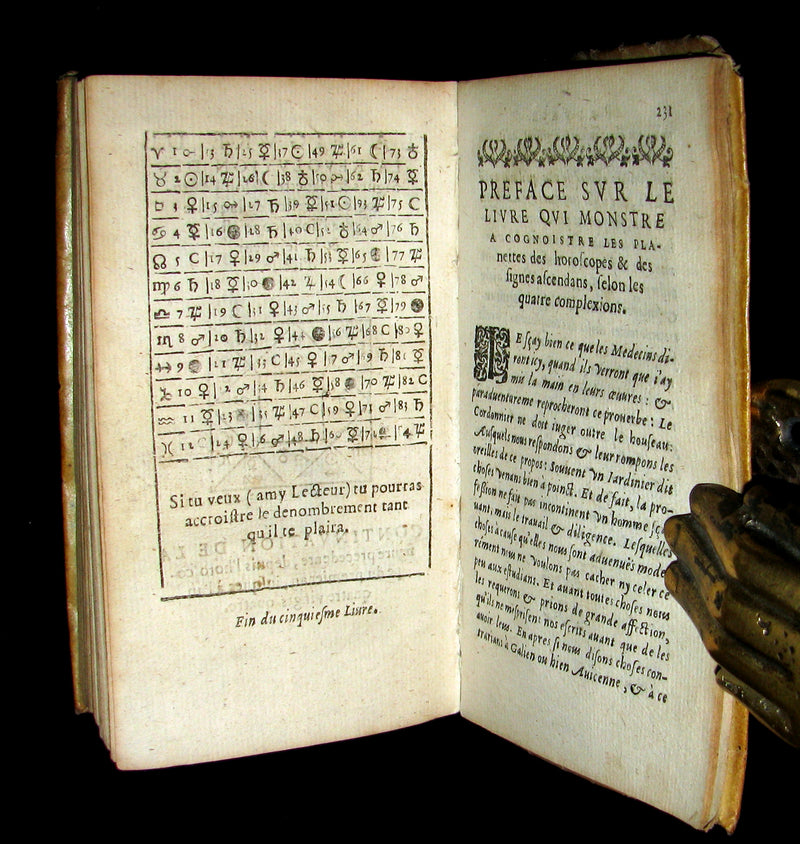 ♈ 1 |13 ♄ |25 ☿ |37 ☉ |49 ♃ |61 ☾ |73
♉ 2 ☉ |14 ♃ |26 ☾ |38 |50 |62 ♄ |74 ☿
3 ♀ |15 |27 ♄ |39 ☿ |51 ☉ |93 ♃ |75 C
♋ 4 ☿ |16 |28 ♄ |40 C |52 |64 ♂ |76 ♄
♌ 5 C |17 ♀ |29 ♂ |41 ♄ |53 ☿ |65 |77 ♃
♍ 6 ♄ |18 ☿ |30 |42 ♃ |54 ☾ |66 ♀ |78 ♂
♎ 7 ♃ |19 C |31 ♀ |43 ♂ |55 ♄ |67 ☿ |79
♏ 8 ♂ |20 ♄ |32 ♀ |44 |56 ♃ |68 C |80 ♀
♐ 9 |21 ♃ |33 C |45 ♀ |7 ♂ |9 ♄ |81 ☿
♑ 10 ♀ |2 ♂ |34 ♄ |46 ☿ |58 |70 ♃ |82 C
♒ 11 ☿ |23 |35 ♃ |47 C |59 ♀ |71 ♂ |83 ♄
♓ 12 |24 ♀ |6 ♂ |48 ♄ |60 ☿ |7 |4 ♃
Si tu veux (amy Lecteur) tu pourras
accroiſtre le denombrement tant
qu'il te plaira.
Fin du cinquieſme Liure.
231
PREFACE SVR LE
LIVRE QVI MONSTRE
A COGNOISTRE LES PLA-
nettes des horoſcopes & des
ſignes aſcendans, ſelon les
quatre complexions.
IE ſçay bien ce que les Medecins di-
ront icy, quand ils verront que i'ay
mis la main en leurs œuures : &
paraduenture me reprocheront ce prouerbe : Le
Cordonnier ne doit iuger outre le houſeau:
Auſquels nous reſpondons & leur rompons les
oreilles de ce propos: Souuent vn Iardinier dit
choſes venans bien a poinct. Et de fait, la pro-
feſſion ne fait pas incontinent vn homme ſça-
uant, mais le trauail & diligence. Leſquelles
choſes à cauſe qu'elles nous ſont aduenuës mode-
rément nous ne voulons pas cacher ny celer ce
peu aux eſtudians. Et auant toutes choſes nous
les requerons & prions de grande affection,
qu'ils ne meſpriſent nos eſcrits auant que de les
auoir leus. En apres ſi nous diſons choſes con-
trarians à Galien ou bien Auicenne, & à ce